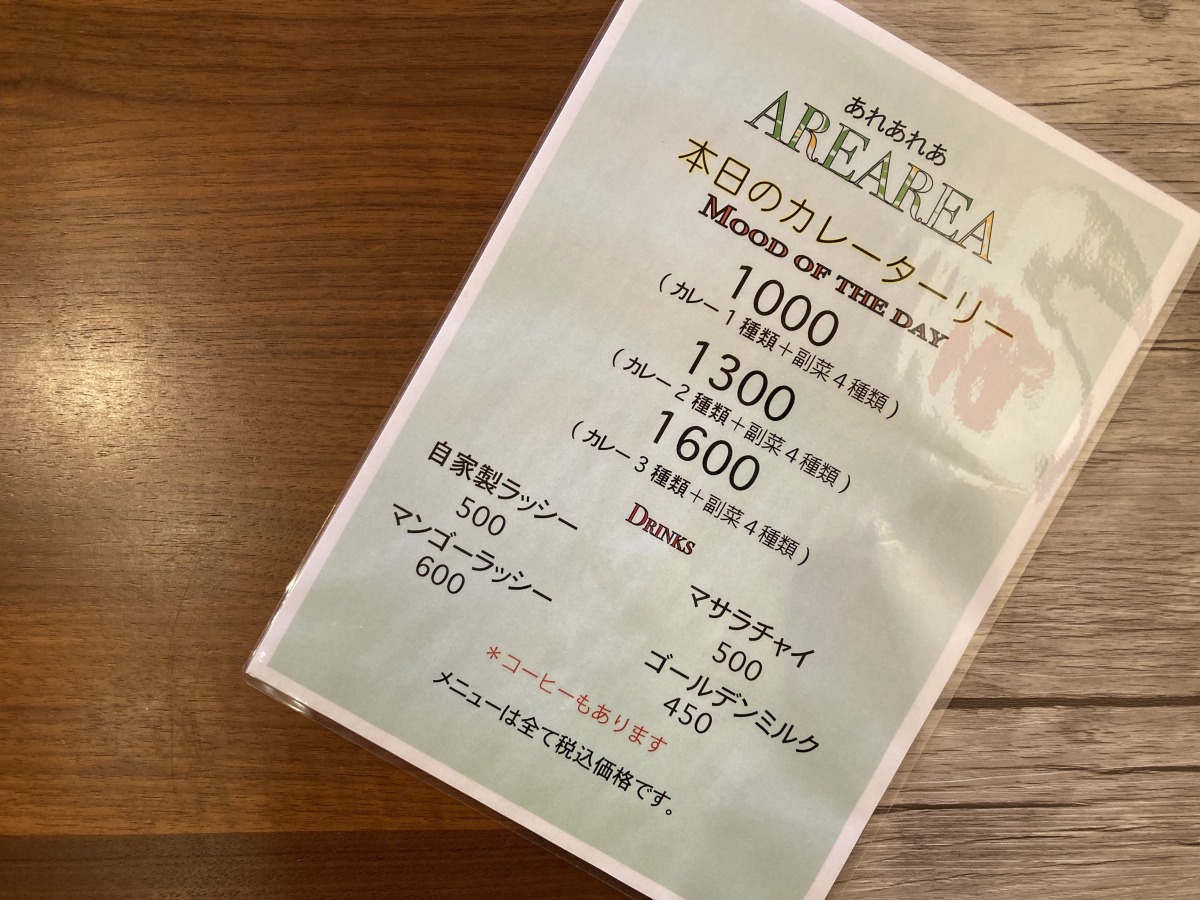 あれあれあ
AREAREA
本日のカレーターリー
MOOD OF THE DAY
1000
(カレー1種類+副菜4種類)
1300
(カレー2種類+副菜4種類)
1600
(カレー3種類+副菜4種類)
DRINKS
自家製ラッシー
500
マンゴーラッシー
600
マサラチャイ
500
ゴールデンミルク
450
*コーヒーもあります
メニューは全て税込価格です。